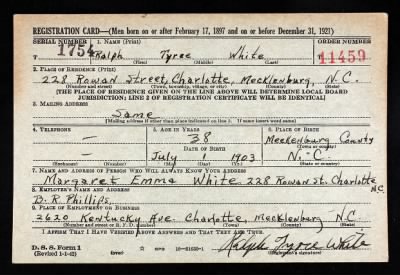 REGISTRATION CARD—(Men born on or after February 17, 1897 and on or before December 31, 1921)
SERIAL NUMBER 1. NAME (Print) ORDER NUMBER
T 1754 Ralph Tyree White T 11459
(First) (Middle) (Last)
2. PLACE OF RESIDENCE (Print)
228 Rowan Street, Charlotte, Mecklenburg, N.C.
(Number and street) (Town, township, village, or city) (County) (State)
[THE PLACE OF RESIDENCE GIVEN ON THE LINE ABOVE WILL DETERMINE LOCAL BOARD
JURISDICTION; LINE 2 OF REGISTRATION CERTIFICATE WILL BE IDENTICAL]
3. MAILING ADDRESS
Same
[Mailing address if other than place indicated on line 2. If same insert word same]
4. TELEPHONE 5. AGE IN YEARS 6. PLACE OF BIRTH
— 38 Mecklenburg County
DATE OF BIRTH (Town or county)
— July 1903 N.C.
(Exchange) (Number) (Mo.) (Day) (Yr.) (State or country)
7. NAME AND ADDRESS OF PERSON WHO WILL ALWAYS KNOW YOUR ADDRESS
Margaret Emma White 228 Rowan St. Charlotte N.C.
8. EMPLOYER'S NAME AND ADDRESS
B.R. Phillips,
9. PLACE OF EMPLOYMENT OR BUSINESS
2620 Kentucky Ave. Charlotte, Mecklenburg N.C.
(Number and street or R. F. D. number) (Town) (County) (State)
I AFFIRM THAT I HAVE VERIFIED ABOVE ANSWERS AND THAT THEY ARE TRUE.
D. S. S. Form 1
(Revised 1-1-42) (over) 16—21630-1 Ralph Tyree White
(Registrant's signature)